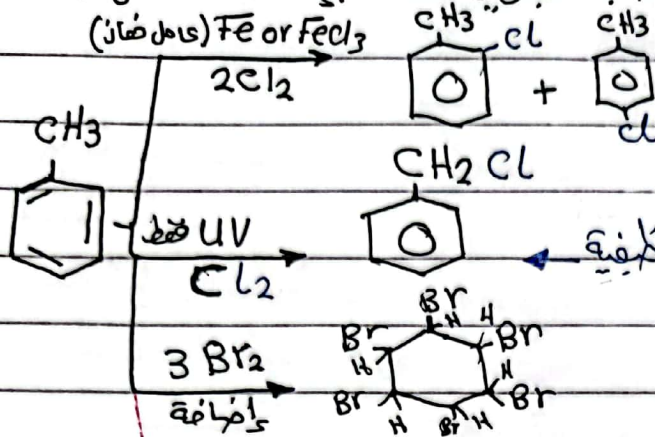 (عامل حفاز) Fe or FeCl3
2Cl2
CH3
Cl
+
CH3
Cl
CH3
فقط UV
Cl2
CH2 Cl
3 Br2
إضافة
Br
H
H
Br
H
Br
H
Br
H
Br
H
Br